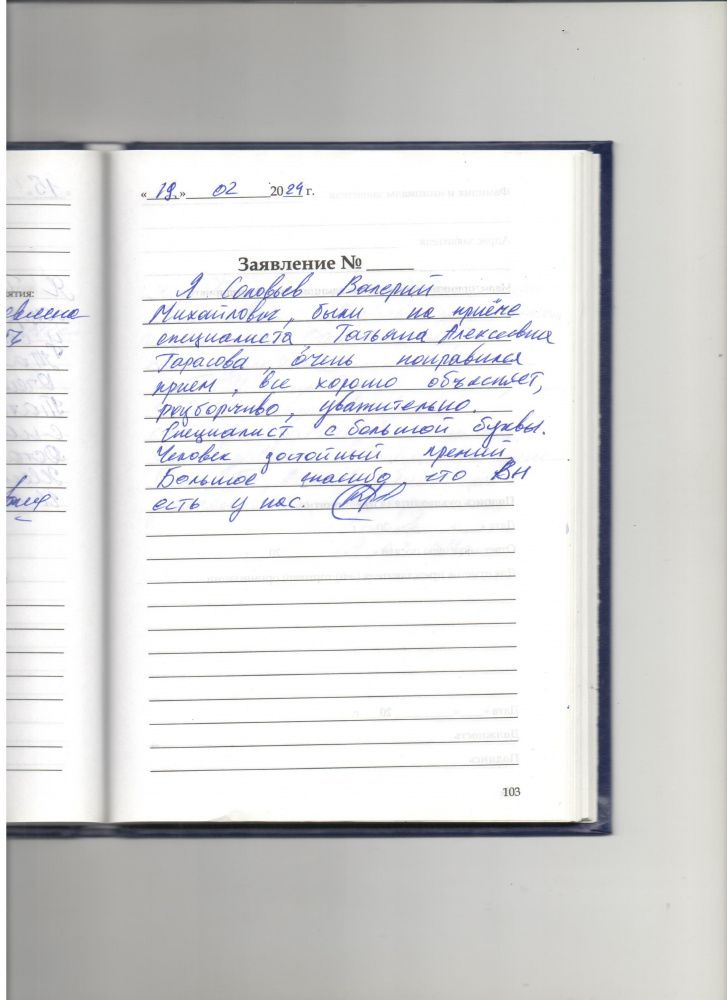 « 19. » 02 2024 г.
Заявление №
Я Соловьев Валерий
ятия:
Михайлович, были на приёме
специалиста Татьяна Алексеевна
Тарасова, очень понравился
прием, все хорошо объясняет,
разборчиво, уважительно.
Специалист с большой буквы.
Человек достойный премий
Большое спасибо, что Вы
есть у нас.
103